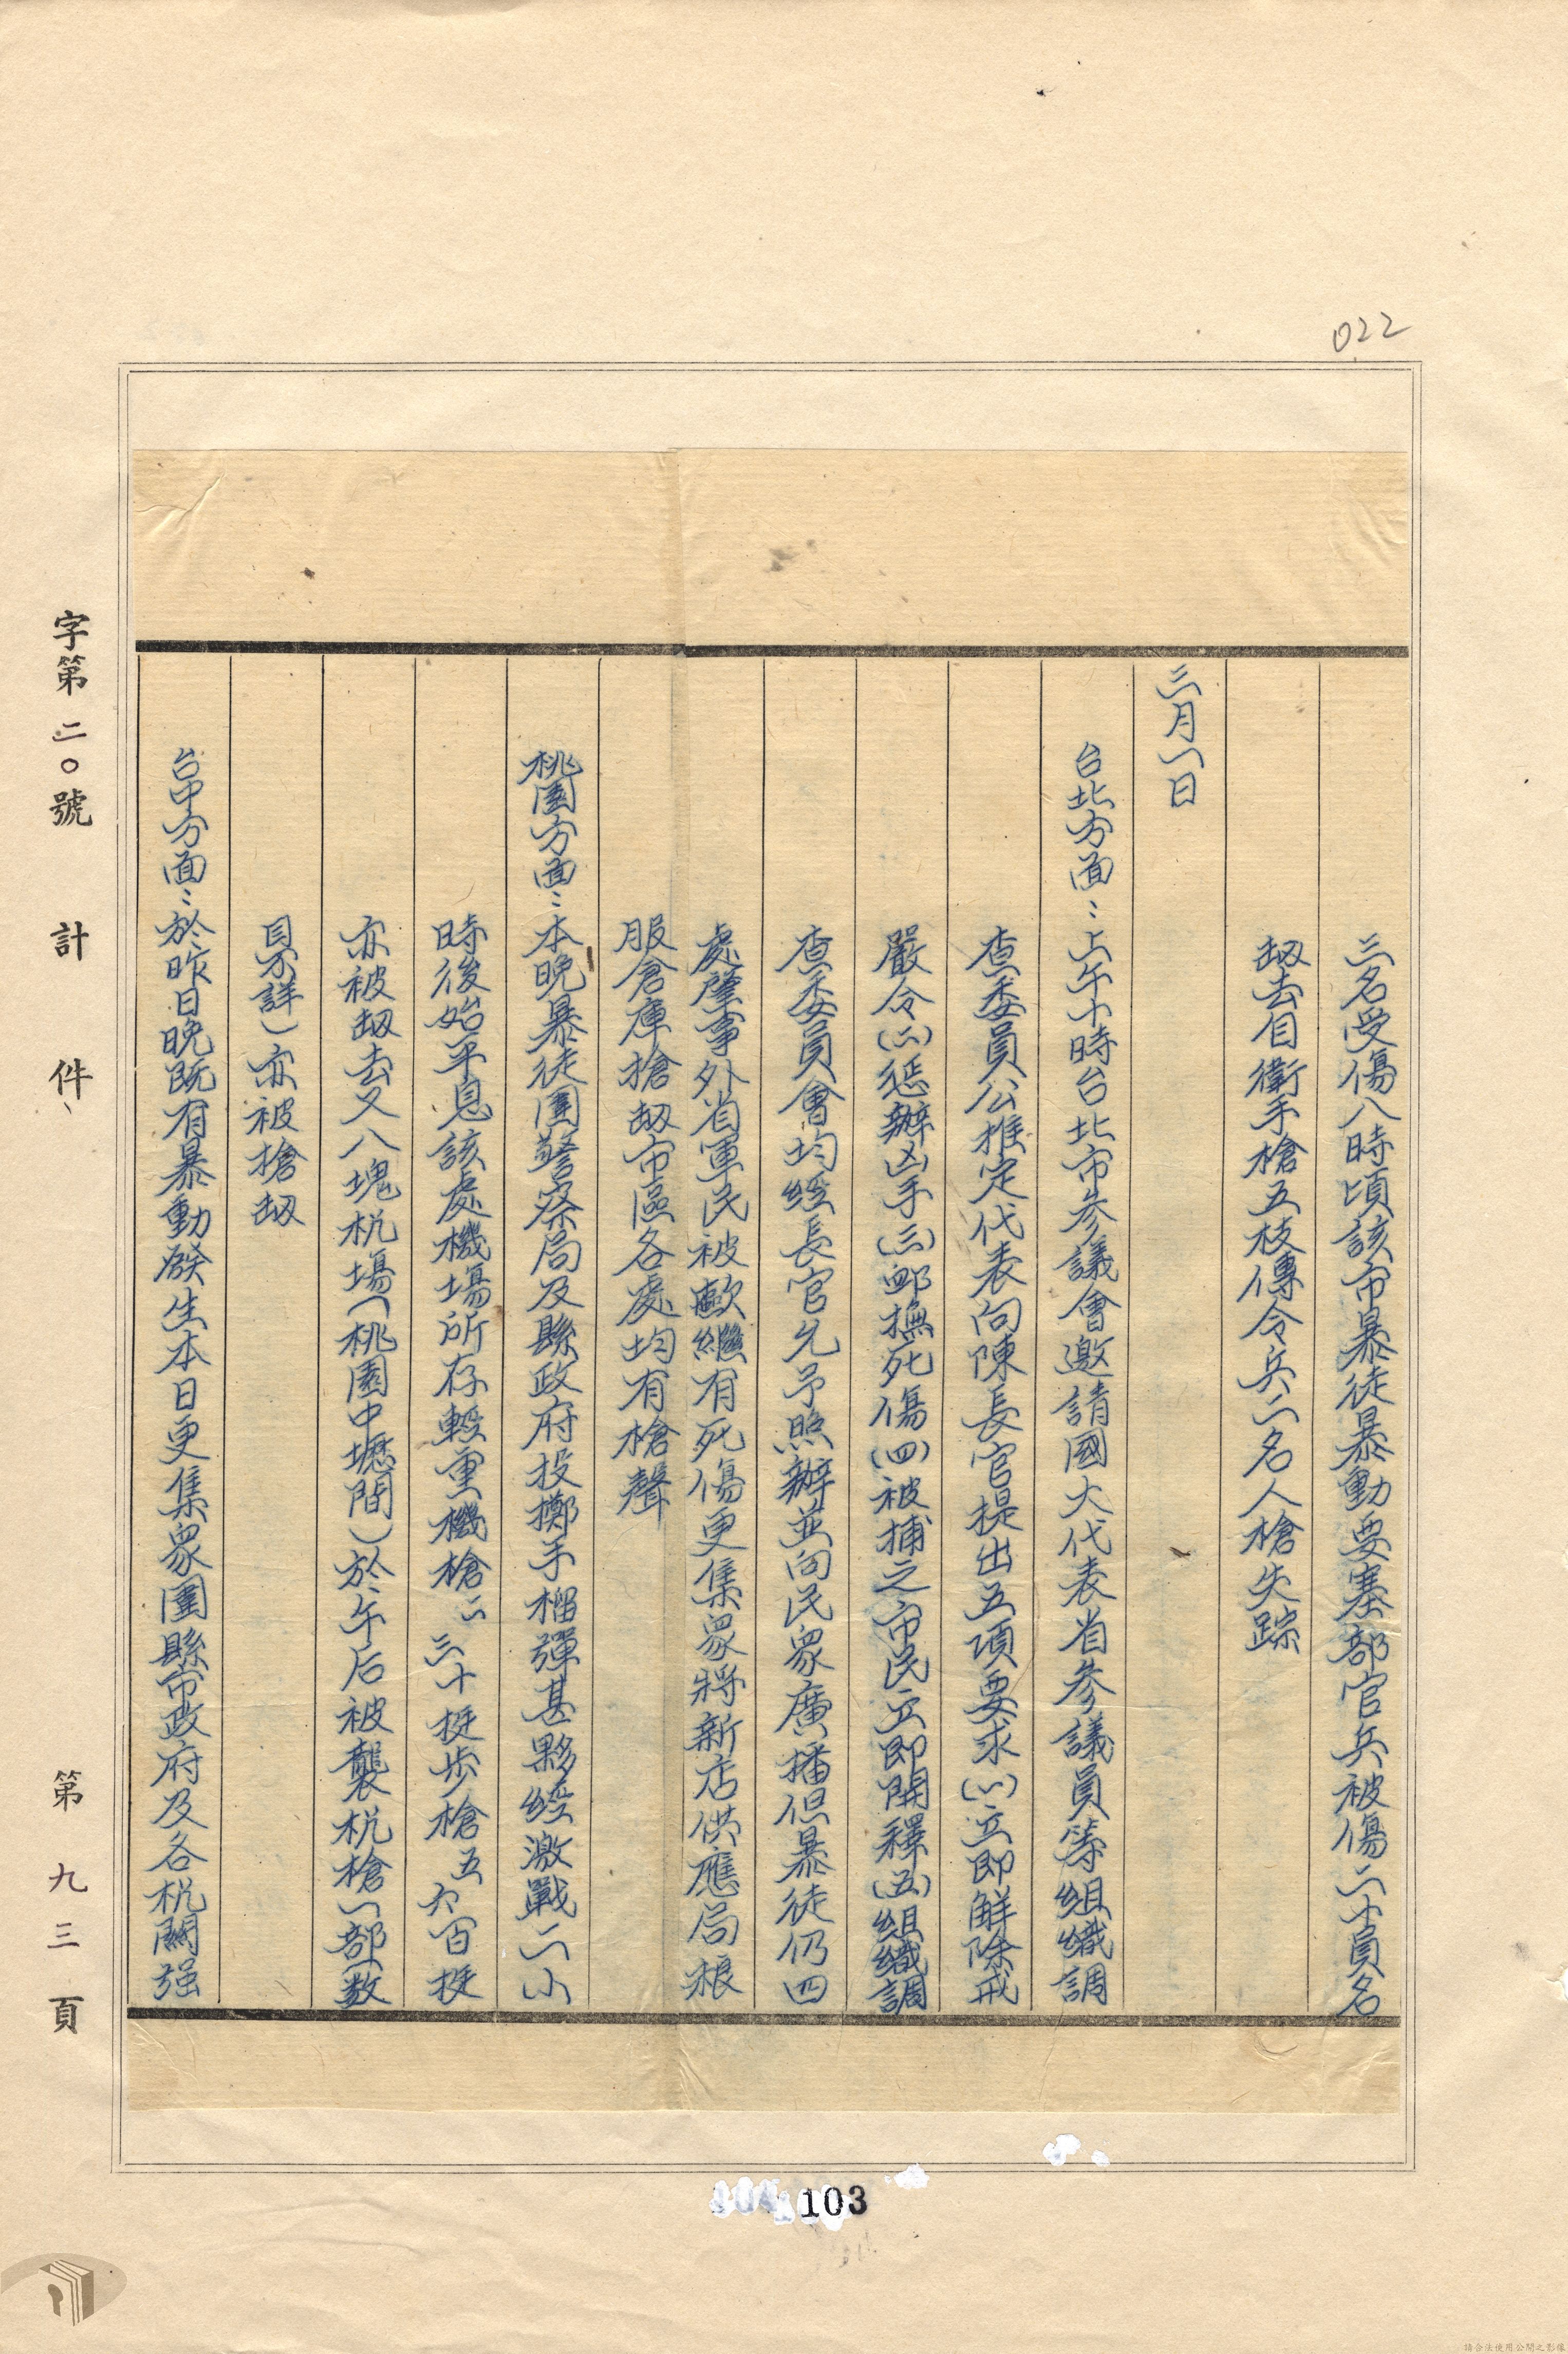 022
三名受傷八時頃該市暴徒暴動要塞部官兵被傷二十員名
刼去自衛手槍五枝傳令兵二名人槍失踪
三月一日
台北方面：上午十時台北市參議會邀請國大代表省參議員等組織調
查委員公推定代表向陳長官提出五項要求(一)立即解除戒
嚴令(二)懲辦凶手(三)卹撫死傷(四)被捕之市民立即開釋(五)組織調
查委員會均經長官允予照辦並向民眾廣播但暴徒仍四
處肇事外省軍民被毆繼有死傷更集眾將新店供應局粮
服倉庫搶刼市區各處均有槍聲
桃園方面：本晚暴徒圍警察局及縣政府投擲手榴彈甚夥經激戰二小
時後始平息該處機場所存輕重機槍二三十挺步槍五六百挺
亦被刼去又八塊机場(桃園中壢間)於午后被襲机槍一部(数
目不詳)亦被搶刼
台中方面：於昨日晚既有暴動發生本日更集眾圍縣市政府及各机關强
字第二〇號 計 件 第九三頁
103
請合法使用公開之影像